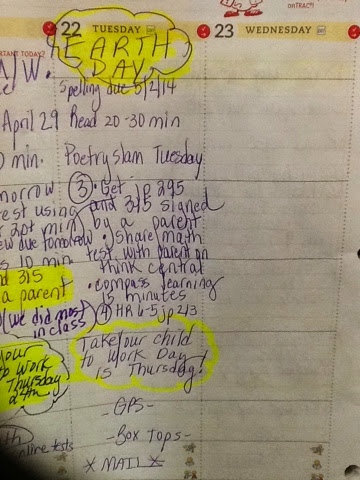 onTRAC
22 TUESDAY
23 WEDNESDAY
RTANT TODAY?
EARTH
DAY
A/W.
Spelling due 5/2/14
April 29 Read 20-30 min
0 min. Poetry Slam Tuesday
morrow ③ • Get jp 295
est using and 315 signed
2pt min by a parent
ew due tomorrow • Share math
s 10 min test with parent on
think central
nd 315 • compass learning
a parent 15 minutes
(we did most ④ HR 6-5 jp 213
in class
Take your child
to Work Day
is Thursday!
Your
to Work
Thursday
24th
-GPS-
-Box Tops-
online tests
*MAIL*